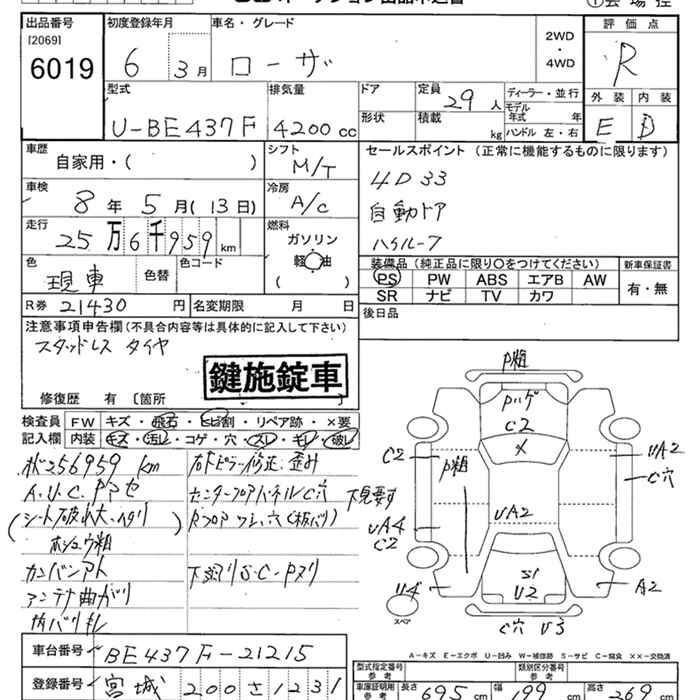 出品番号 初度登録年月 車名・グレード 評価点
[2069]
6019 6 3月 ローザ 2WD・4WD R
型式 排気量 ドア 定員 29人 ディーラー・並行 外装 内装
モデル年式 年
U-BE437F 4200cc 形状 積載 kg ハンドル 左・右 E D
車歴 シフト セールスポイント (正常に機能するものに限ります)
自家用・( ) M/T 4D33
車検 冷房
8年5月(13日) A/C 自動ドア
走行 燃料
25万6千959km ガソリン ハイルーフ
軽油
( )
色 色替 色コード 装備品 (純正品に限り○をつけてください) 新車保証書
現車 PS PW ABS エアB AW 有・無
SR ナビ TV カワ
R券 21430円 名変期限 月 日 後日品
注意事項申告欄(不具合内容等は具体的に記入して下さい)
スタッドレス タイヤ
鍵施錠車
修復歴 有 [箇所 ]
検査員 FW キズ・飛石・ヒビ割・リペア跡・×要
記入欄 内装 キズ・汚レ・コゲ・穴・スレ・キレ・破レ
256959 km
A.U.C.Pアセ センターフロアパネルC穴 下見要す
(シート破レ大
カンバンアト
アンテナ曲がり
P粗
C2
×
C2 P粗 UA2 C穴
UA2
UA4
C2
S1
U2
U4 A2
スペア
C穴 U3
A－キズ E－エクボ U－凹み W－補修跡 S－サビ C－腐食 ××－交換済
車台番号 BE437F-21215 型式指定番号 参考 類別区分番号 参考
登録番号 宮城200さ1231 車庫証明用 参考 長さ 695cm 幅 199cm 高さ 269cm